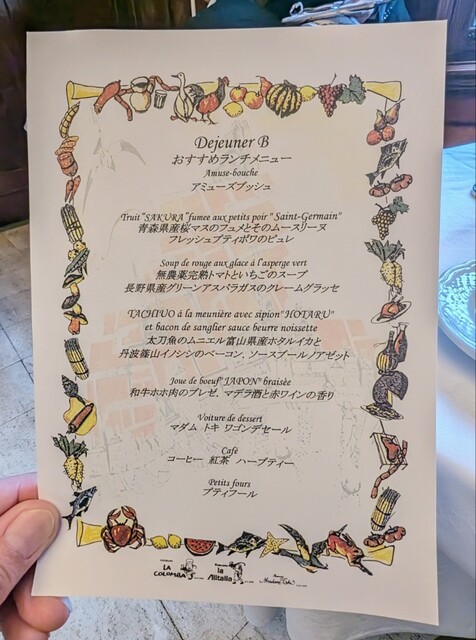 Dejeuner B
おすすめランチメニュー
Amuse-bouche
アミューズブッシュ
Truit "SAKURA" fumee aux petits poir "Saint-Germain"
青森県産桜マスのフュメとそのムースリーヌ
フレッシュプティポワのピュレ
Soup de rouge aux glace á l'asperge vert
無農薬完熟トマトといちごのスープ
長野県産グリーンアスパラガスのクレームグラッセ
TACHIUO á la meunière avec sipion "HOTARU"
et bacon de sanglier sauce beurre noissette
太刀魚のムニエル富山県産ホタルイカと
丹波篠山イノシシのベーコン、ソースブールノアゼット
Joue de boeuf "JAPON" braisèe
和牛ホホ肉のブレゼ、マデラ酒と赤ワインの香り
Voiture de dessert
マダム トキ ワゴンデセール
Café
コーヒー 紅茶 ハーブティー
Petits fours
プティフール
LA COLOMBA
la Alitalia